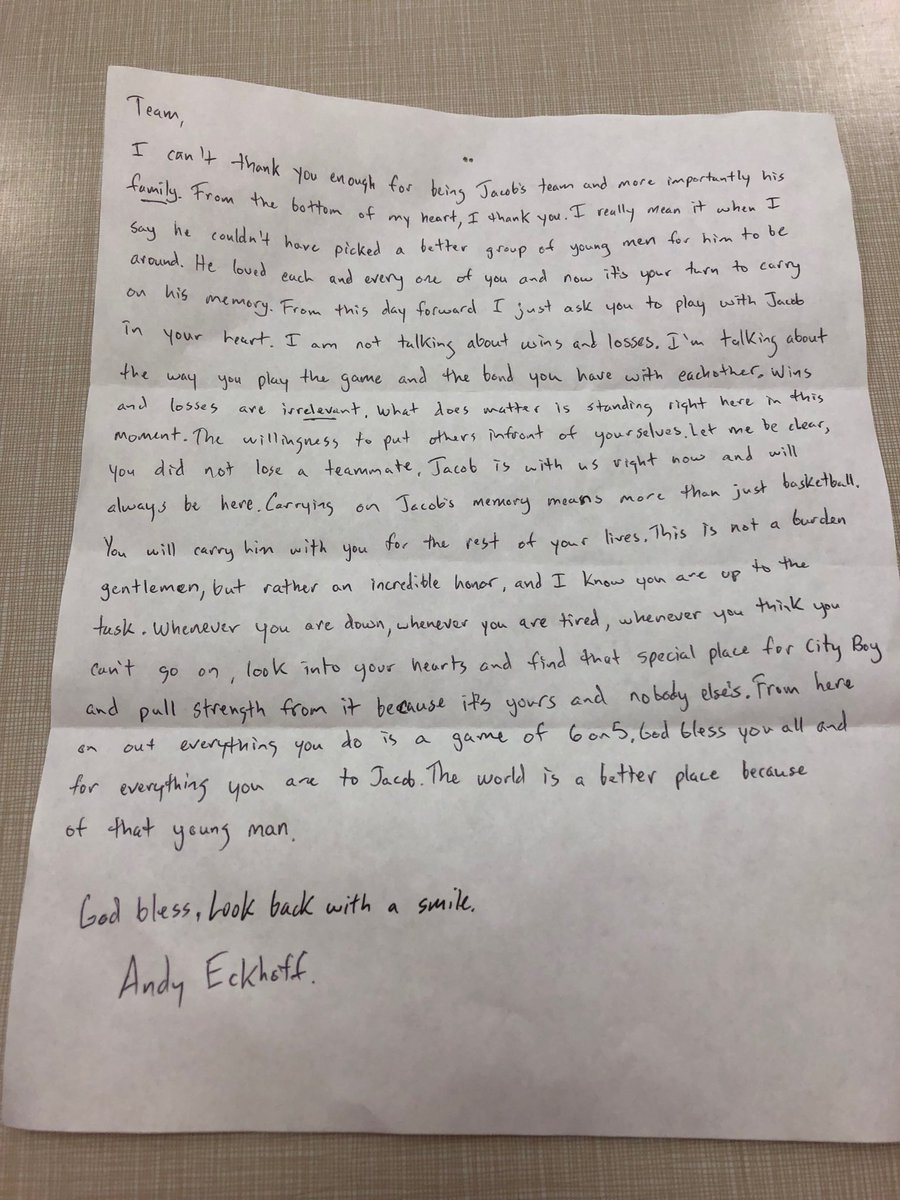 Team,
I can't thank you enough for being Jacob's team and more importantly his
family. From the bottom of my heart, I thank you. I really mean it when I
say he couldn't have picked a better group of young men for him to be
around. He loved each and every one of you and now it's your turn to carry
on his memory. From this day forward I just ask you to play with Jacob
in your heart. I am not talking about wins and losses. I'm talking about
the way you play the game and the bond you have with eachother. Wins
and losses are irrelevant. What does matter is standing right here in this
moment. The willingness to put others infront of yourselves. Let me be clear,
you did not lose a teammate. Jacob is with us right now and will
always be here. Carrying on Jacob's memory means more than just basketball.
You will carry him with you for the rest of your lives. This is not a burden
gentlemen, but rather an incredible honor, and I know you are up to the
task. Whenever you are down, whenever you are tired, whenever you think you
can't go on, look into your hearts and find that special place for City Boy
and pull strength from it because it's yours and nobody else's. From here
on out everything you do is a game of 6 on 5. God bless you all and
for everything you are to Jacob. The world is a better place because
of that young man.
God bless, Look back with a smile.
Andy Eckhoff.